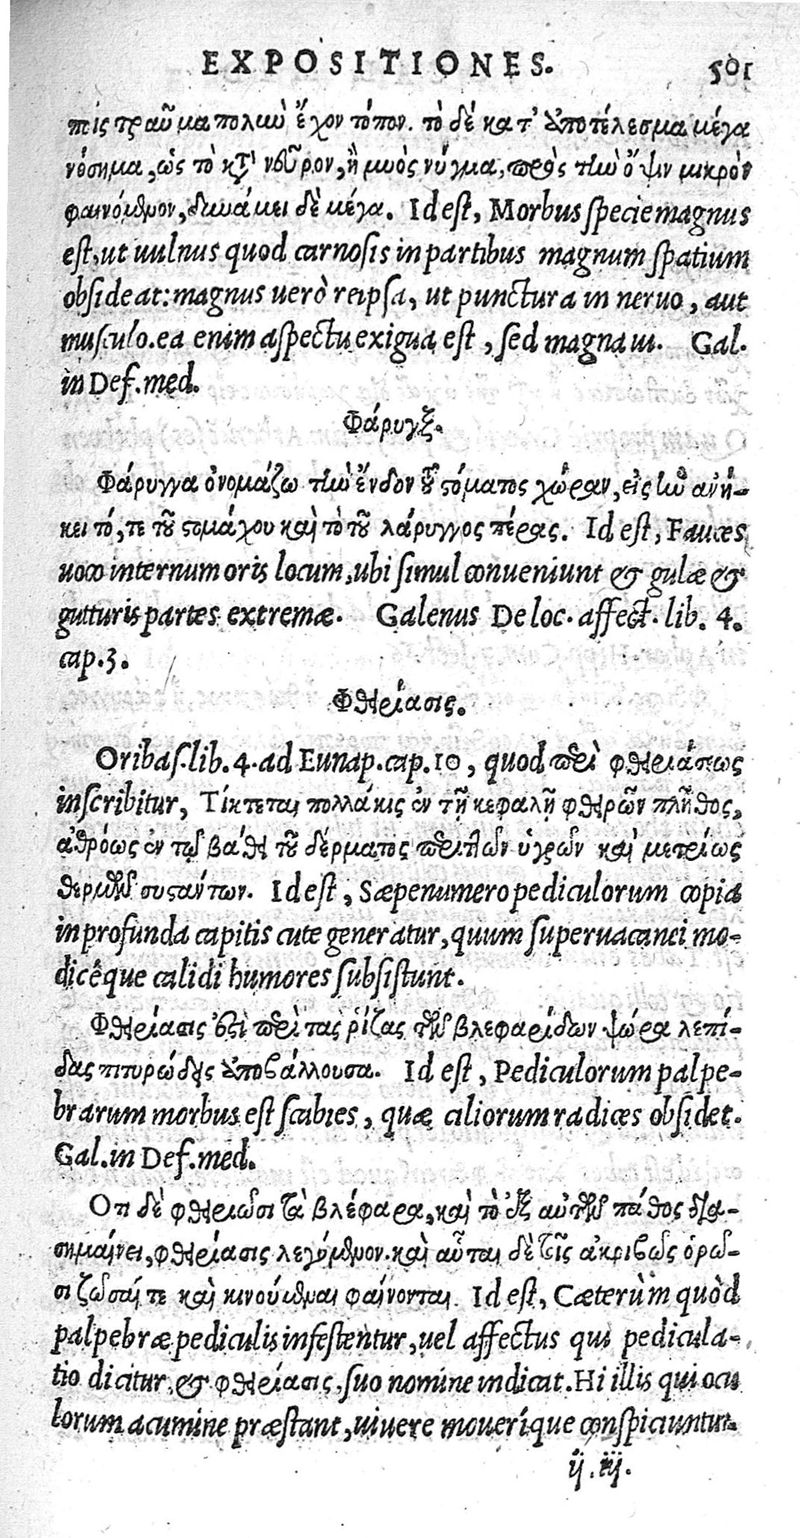 EXPOSITIONES. 501
πίς τραῦμα πολιὼ ἔχον τόπον. τὸ δὲ κατ' ἀποτέλεσμα μέγα
νόσημα, ὡς τὸ κτ' νεῦρον, ἢ μυὸς νύγμα, πρὸς τὴν ὄψιν μικρὸν
φαινόμενον, δυνάμει δὲ μέγα. Id est, Morbus specie magnus
est, ut uulnus quod carnosis in partibus magnum spatium
obsideat: magnus uerò reipsa, ut punctura in neruo, aut
musculo. ea enim aspectu exigua est, sed magna ui. Gal.
in Def. med.
Φάρυγξ.
Φάρυγγα ὀνομάζω τὴν ἔνδον τοῦ στόματος χώραν, εἰς ἣν ἀνή-
κει τό, τε τοῦ στομάχου καὶ τὸ τοῦ λάρυγγος πέρας. Id est, Fauces
uoco internum oris locum, ubi simul conueniunt & gulæ &
gutturis partes extremæ. Galenus De loc. affect. lib. 4.
cap. 3.
Φθειρίασις.
Oribas. lib. 4. ad Eunap. cap. 10, quod περὶ φθειριάσεως
inscribitur, Τίκτεται πολλάκις ἐν τῇ κεφαλῇ φθειρῶν πλῆθος,
ἀθρόως ἐν τῷ βάθει τοῦ δέρματος περιττῶν ὑγρῶν καὶ μετρίως
θερμῶν συστάντων. Id est, Sæpenumero pediculorum copia
in profunda capitis cute generatur, quum superuacanei mo-
diceque calidi humores subsistunt.
Φθειρίασις ἐστὶ περὶ τὰς ῥίζας τῶν βλεφαρίδων ψώρα λεπί-
δας πιτυρώδεις ἀποβάλλουσα. Id est, Pediculorum palpe-
brarum morbus est scabies, quæ ciliorum radices obsidet.
Gal. in Def. med.
Οτι δὲ φθειριῶσι τὰ βλέφαρα, καὶ τὸ ἐξ αὐτῶν πάθος δια-
σημαίνει, φθειρίασις λεγόμενον. καὶ αὗται δὲ τοῖς ἀκριβῶς ὁρῶ-
σι ζῶσαί τε καὶ κινούμεναι φαίνονται. Id est, Cæterùm quòd
palpebræ pediculis infestentur, uel affectus qui pedicula-
tio dicitur, & φθειρίασις, suo nomine indicat. Hi illis qui ocu
lorum acumine præstant, uiuere mouerique conspiciuntur.
ij. iij.